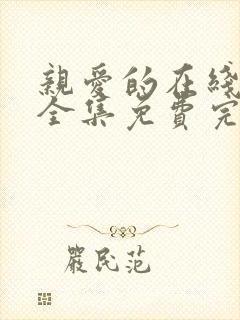 親愛的在綫
全集免費完
嚴民范